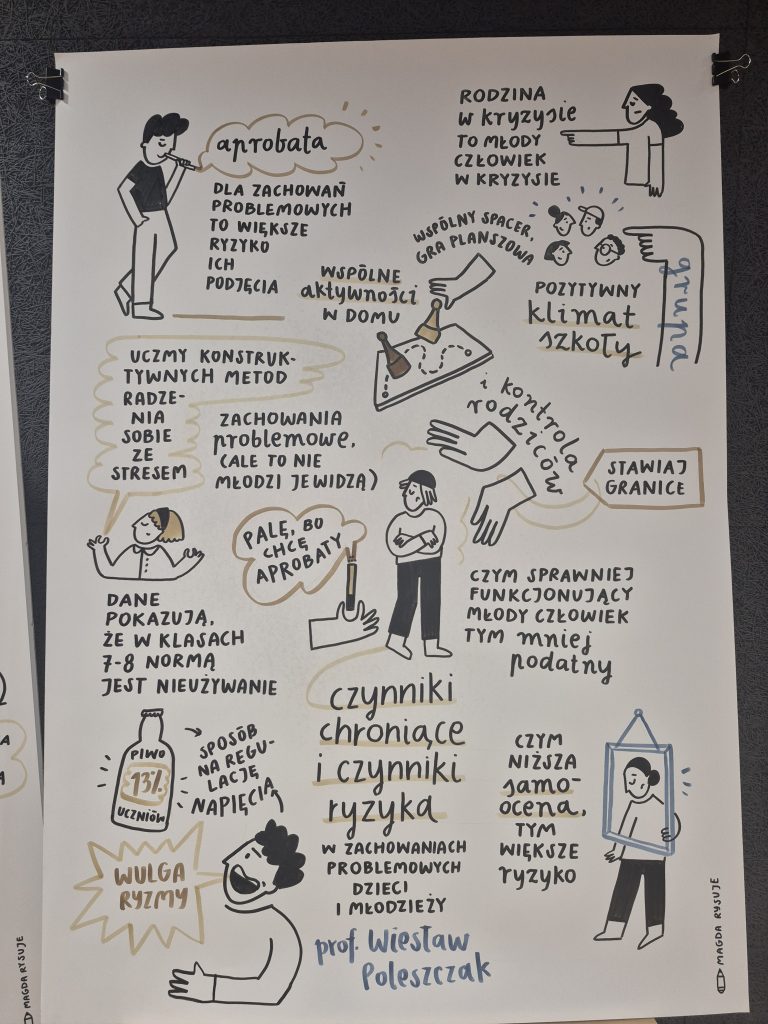 aprobata
DLA ZACHOWAŃ
PROBLEMOWYCH
TO WIĘKSZE
RYZYKO
ICH
PODJĘCIA
RODZINA
w kryzysie
TO MŁODY
CZŁOWIEK
W KRYZYSIE
WSPÓLNY SPACER,
GRA PLANSZOWA
WSPÓLNE
aktywności
W DOMU
grupa
POZYTYWNY
klimat
szkoły
UCZMY KONSTRUK-
TYWNYCH METOD
RADZE-
NIA
SOBIE
ZE
STRESEM
ZACHOWANIA
problemowe,
(ALE TO NIE
MŁODZI JE WIDZĄ)
i kontrola
rodziców
STAWIAJ
GRANICE
PALĘ, BO
CHCĘ
APROBATY
DANE
POKAZUJĄ,
ŻE W KLASACH
7-8 NORMĄ
JEST NIEUŻYWANIE
CZYM SPRAWNIEJ
FUNKCJONUJĄCY
MŁODY CZŁOWIEK
TYM mniej
podatny
PIWO
13%
UCZNIÓW
SPOSÓB
NA REGU-
LACJĘ
NAPIĘCIA
WULGA
RYZMY
czynniki
chroniące
i czynniki
ryzyka
W ZACHOWANIACH
PROBLEMOWYCH
DZIECI
I MŁODZIEŻY
prof. Wiesław
Poleszczak
CZYM
NIŻSZA
samo-
ocena,
TYM
WIĘKSZE
ryzyko
MAGDA RYSUJE
MAGDA RYSUJE